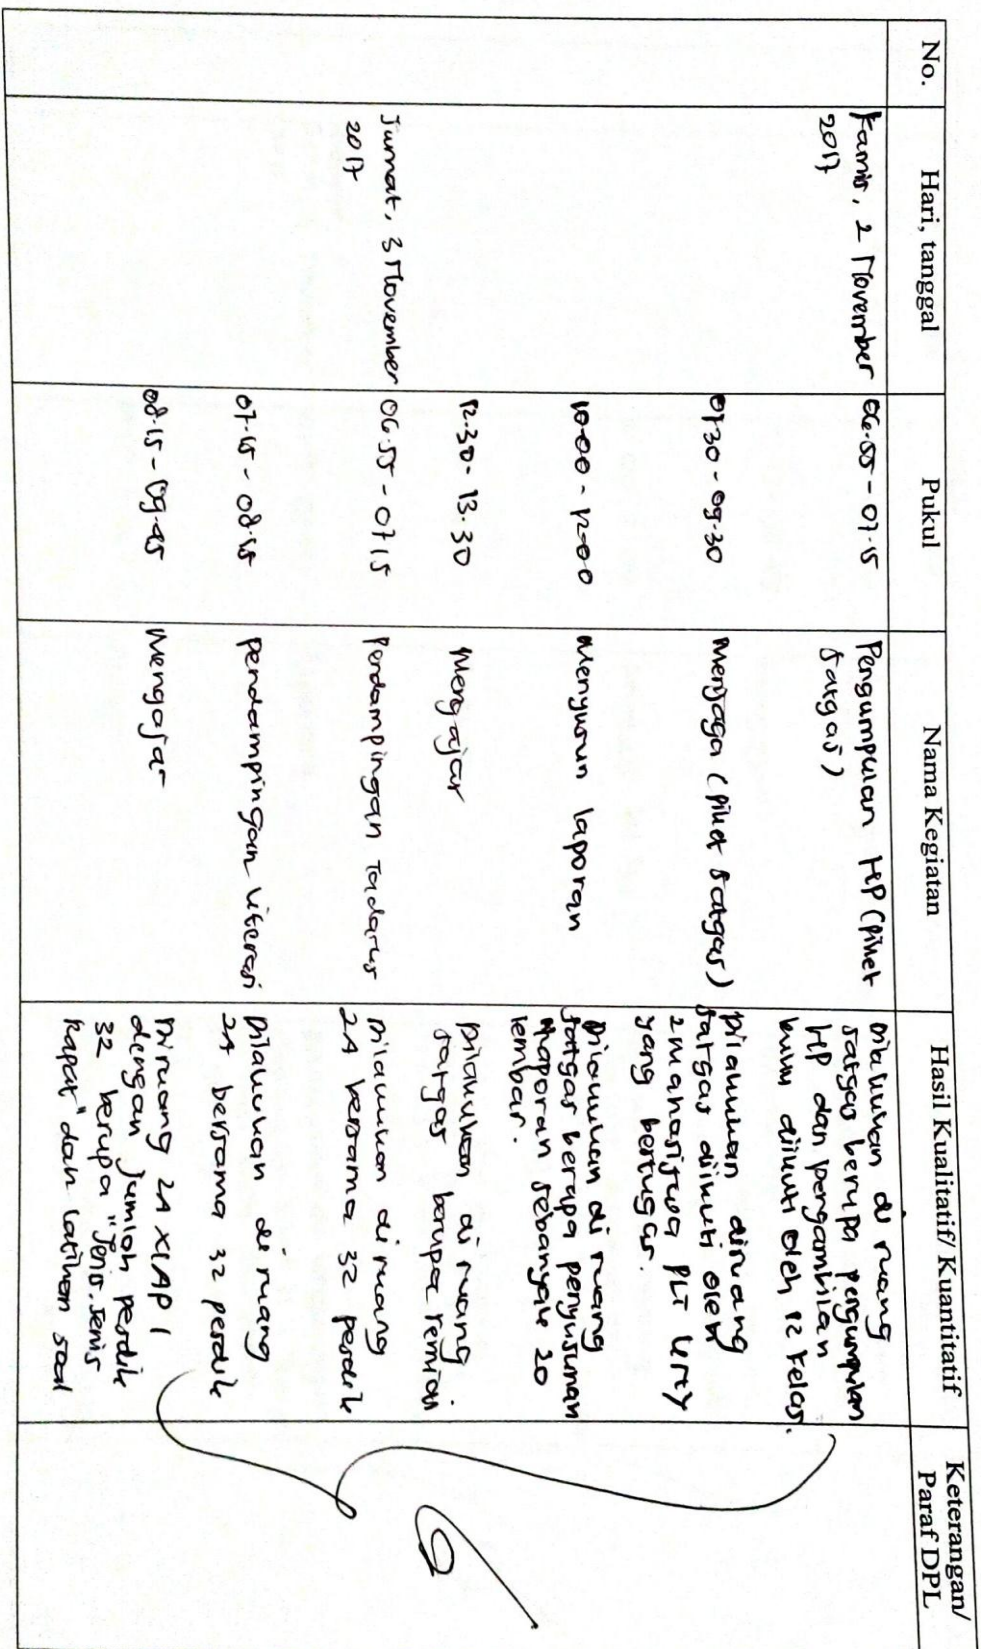 No.
Hari, tanggal
Pukul
Nama Kegiatan
Hasil Kualitatif/ Kuantitatif
Keterangan/
Paraf DPL
Kamis, 2 November
2017
06.55 - 07.15
Pengumpulan HP (piket
satgas)
Dilakukan di ruang
satgas berupa pengumpulan
HP dan pengambilan
diikuti oleh 12 kelas.
07.30 - 09.30
Menjaga (piket satgas)
Dilakukan diruang
satgas diikuti oleh
2 mahasiswa PLT
yang bertugas.
10.00 - 12.00
Menyusun laporan
Dilakukan di ruang
satgas berupa penyusunan
laporan sebanyak 20
lembar.
12.30 - 13.30
Mengajar
Dilakukan di ruang
satgas berupa remidi
Jumat, 3 November
2017
06.55 - 07.15
Pendampingan Tadarus
Dilakukan di ruang
24 bersama 32 perdik
07.15 - 08.15
Pendampingan literasi
Dilakukan di ruang
24 bersama 32 perdik
08.15 - 09.45
Mengajar
Diruang 24 XI AP 1
dengan jumlah perdik
32 berupa "Jenis-Jenis
Rapat" dan latihan soal